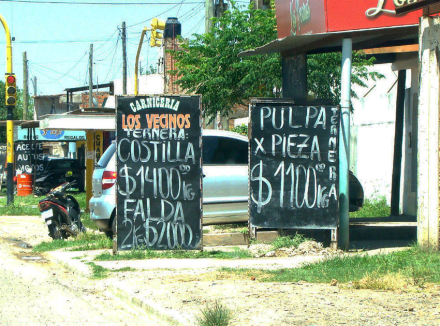 CARNICERIA
LOS VECINOS
TERNERA
COSTILLA
$1400 KG
FALDA
2KG $2000
PULPA
X PIEZA
$1100 KG
TERNERA
ACEITE